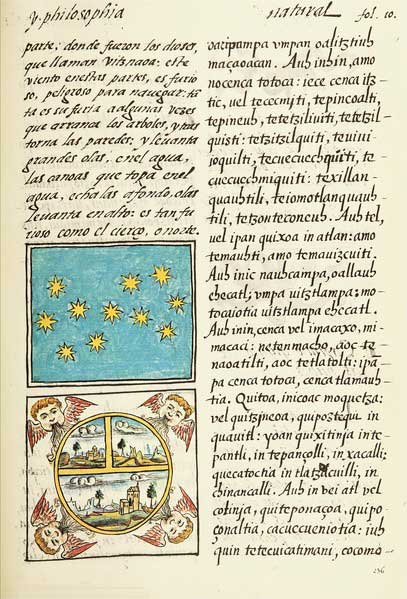 y philosophia
natural
fol. 10.
parte; donde fueron los dioses,
que llaman vitsnaoa: este
viento enestas partes, es furio
so, peligroso para navegar: tã
ta es su furia a algunas vezes
que arranca los arboles, y tras
torna las paredes: y levanta
grandes olas, enel agua,
las canoas que topa enel
agua, echa las afondo, o las
levanta en alto: es tan fu
rioso como el cierço, o norte.
vmpan oalitztiuh
maçaoacan. Auh inhin, amo
nocenca totoca: iece cenca itz
tic, vel tececmiti, tepincoalti,
tepineuh, tetetziliuiti, tetetzil
quisti: tetzitzilquiti, teuiui
ioquilti, tecuecuechquiti, te
cuecuechmiquiti: texillan
quauhtili, teiomotlanquauh
tili, tetzonteconeuh. Auh tel,
vel ipan quixoa in atlan: amo
temauhti, amo temauizcuiti.
Auh inic nauhcampa, oallauh
ehecatl; vmpa uitztlampa: mo
tocaiotia uitztlampa ehecatl.
Auh inin, cenca vel imacaxo, mi
macaci: netenmacho, aoc te
naoatilti, aoc tetlatolti: ipã
pa cenca totoca, cenca tlamauh
tia. Quitoa, iniquac moquetza:
vel quitzineoa, quipoztequi in
quauitl: yoan quixitinia in te
pantli, in tepançolli, in xacalli:
quecatoctia in tlatzacuilli, in
chinancalli. Auh in vei atl vel
colinia, quiteponaçoa, quipo
çonaltia, cacuecueniotia: iuh
quin tetecuicatimani, cocomo
236